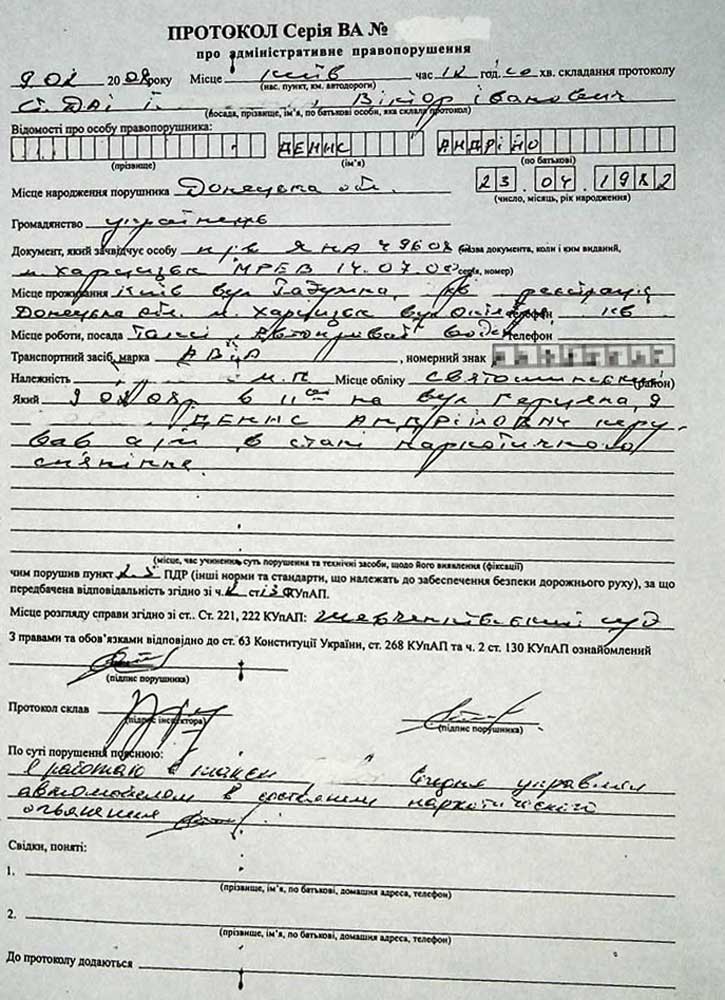 ПРОТОКОЛ Серія ВА №
про адміністративне правопорушення
9 02 2008 року Місце Київ час 12 год. хв. складання протоколу
(нас. пункт, км. автодороги)
Віктор Іванович
(посада, прізвище, ім'я, по батькові особи, яка склала протокол)
Відомості про особу правопорушника:
ДЕНИС АНДРІЙО
(прізвище) (ім'я) (по батькові)
Місце народження порушника Донецька обл. 23.04.1982
(число, місяць, рік народження)
Громадянство українець
Документ, який засвідчує особу (назва документа, коли і ким виданий,
м. Харцизьк МРЕВ 14.07.0 серія, номер)
Місце проживання Київ вул реєстрація
Донецька обл. м. Харцизьк вул телефон
Місце роботи, посада Таксі водій телефон
Транспортний засіб, марка , номерний знак
Належність Місце обліку (район)
Який 9 02 08р в на вул 9
ДЕНИС АНДРІЙОВИЧ керу-
вав а/м в стані наркотичного
сп'яніння
(місце, час учинення, суть порушення та технічні засоби, щодо його виявлення (фіксації)
чим порушив пункт ПДР (інші норми та стандарти, що належать до забезпечення безпеки дорожнього руху), за що
передбачена відповідальність згідно зі ч. ст 130 КУпАП.
Місце розгляду справи згідно зі ст.. Ст. 221, 222 КУпАП: Шевченківський суд
З правами та обов'язками відповідно до ст. 63 Конституції України, ст. 268 КУпАП та ч. 2 ст. 130 КУпАП ознайомлений
(підпис порушника)
Протокол склав
(підпис інспектора) (підпис порушника)
По суті порушення пояснюю:
Я работаю в такси управлял
автомобилем в состоянии наркотического
опьянения
Свідки, поняті:
1.
(прізвище, ім'я, по батькові, домашня адреса, телефон)
2.
(прізвище, ім'я, по батькові, домашня адреса, телефон)
До протоколу додаються